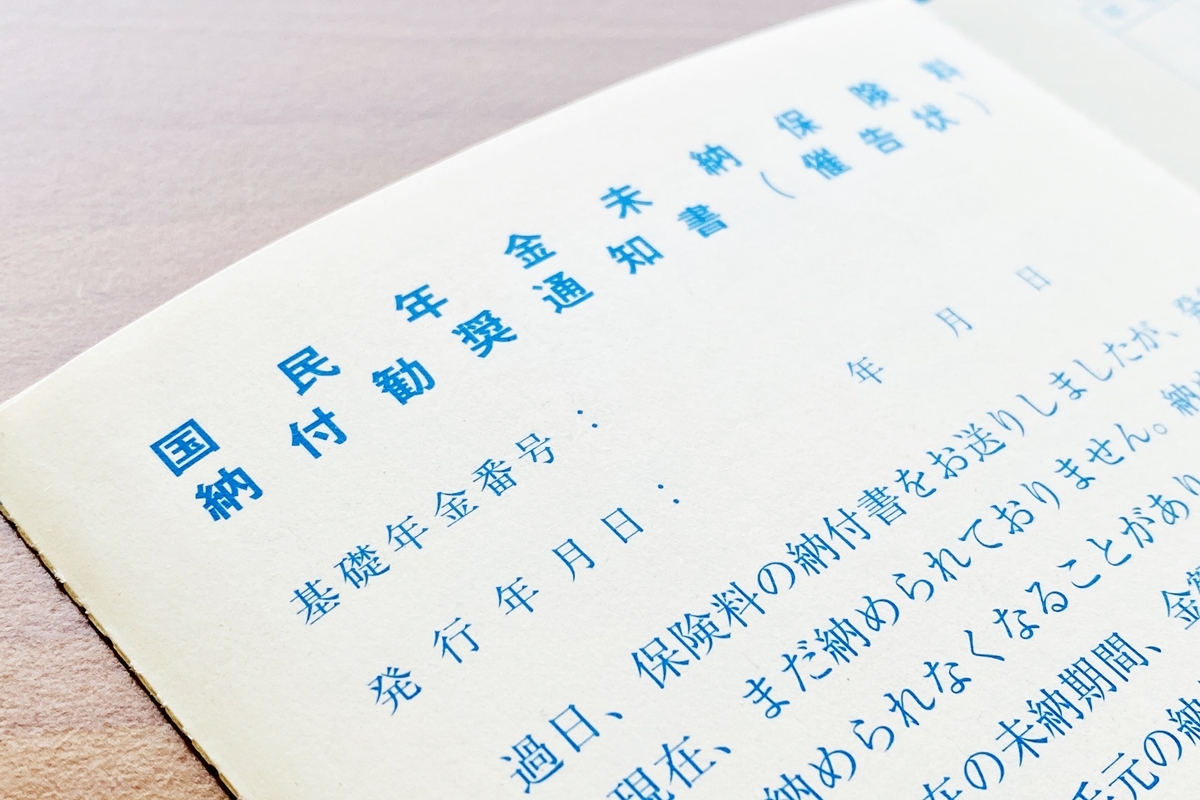 国民年金未納保険料
納付勧奨通知書(催告状)
年 月 日
基礎年金番号:
発行年月日:
過日、保険料の納付書をお送りしましたが、発
現在、まだ納められておりません。納
納められなくなることがあり
在の未納期間、金額
手元の納